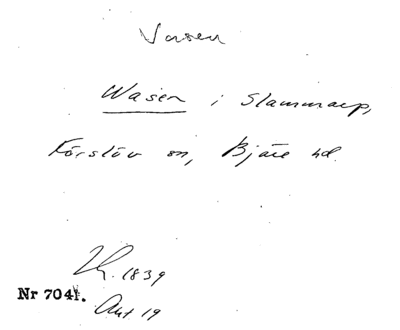 Vasen
Wasen i Slammarp,
Förslöv sn, Bjäre hd.
Lh. 1839
Nr 7041.
Akt 19